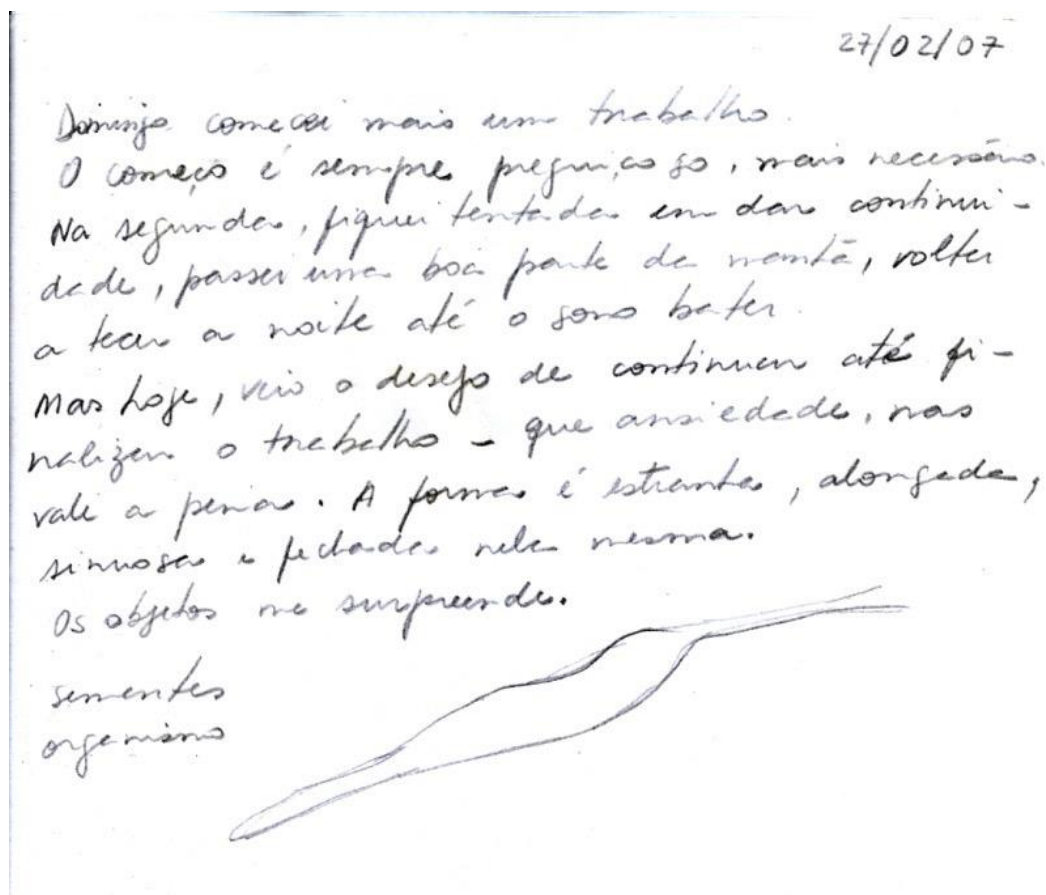 27/02/07
Domingo comecei mais um trabalho.
O começo é sempre preguiçoso, mais necessário.
Na segunda, fiquei tentada em dar continui-
dade, passei uma boa parte da manhã, voltei
a tecer a noite até o sono bater.
Mas hoje, veio o desejo de continuar até fi-
nalizar o trabalho - que ansiedade, mas
vale a pena. A forma é estranha, alongada,
sinuosa e fechada nela mesma.
Os objetos me surpreende.
sementes
organismo